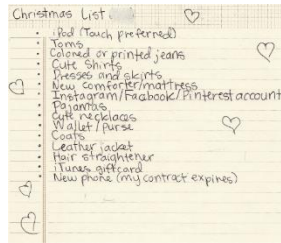 Christmas List
• iPod (Touch preferred)
• Toms
• Colored or printed jeans
• Cute Shirts
• Dresses and skirts
• New comforter/mattress
• Instagram/Facbook/Pinterest account
• Pajamas
• Cute necklaces
• Wallet/purse
• Coats
• Leather jacket
• Hair straightener
• iTunes giftcard
• New phone (my contract expires)